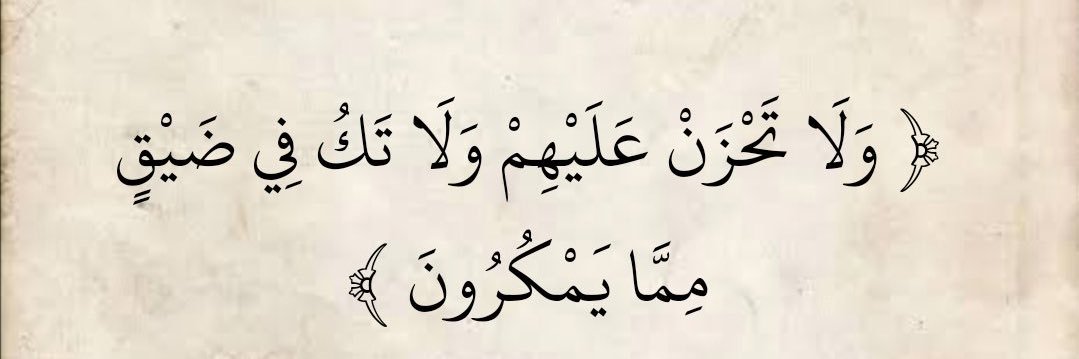 ﴿ وَلَا تَحْزَنْ عَلَيْهِمْ وَلَا تَكُ فِي ضَيْقٍ
مِمَّا يَمْكُرُونَ ﴾